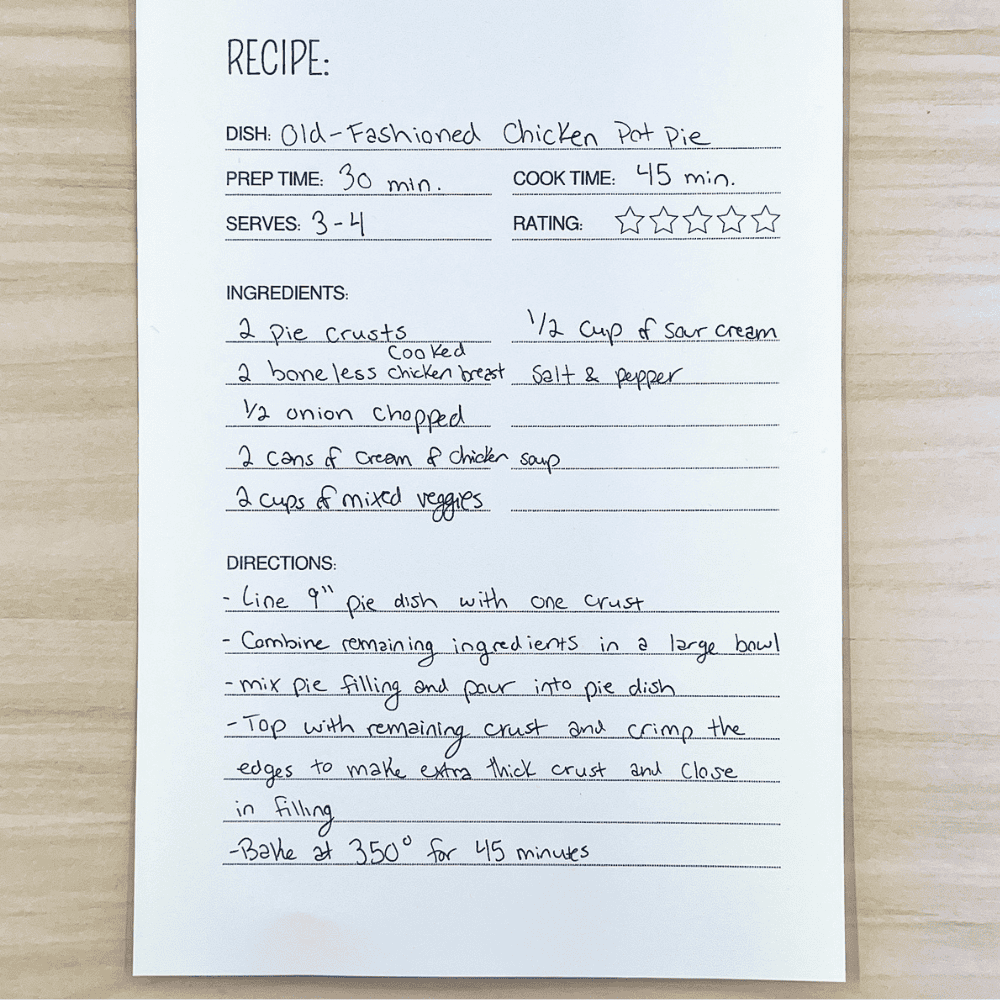 RECIPE:
DISH: Old-Fashioned Chicken Pot Pie
PREP TIME: 30 min. COOK TIME: 45 min.
SERVES: 3-4 RATING:
INGREDIENTS:
2 pie crusts
Cooked
2 boneless chicken breast
1/2 onion chopped
2 cans of cream of chicken soup
2 cups of mixed veggies
1/2 cup of sour cream
Salt & pepper
DIRECTIONS:
- Line 9" pie dish with one crust
- Combine remaining ingredients in a large bowl
- mix pie filling and pour into pie dish
- Top with remaining crust and crimp the
edges to make extra thick crust and close
in filling
- Bake at 350° for 45 minutes